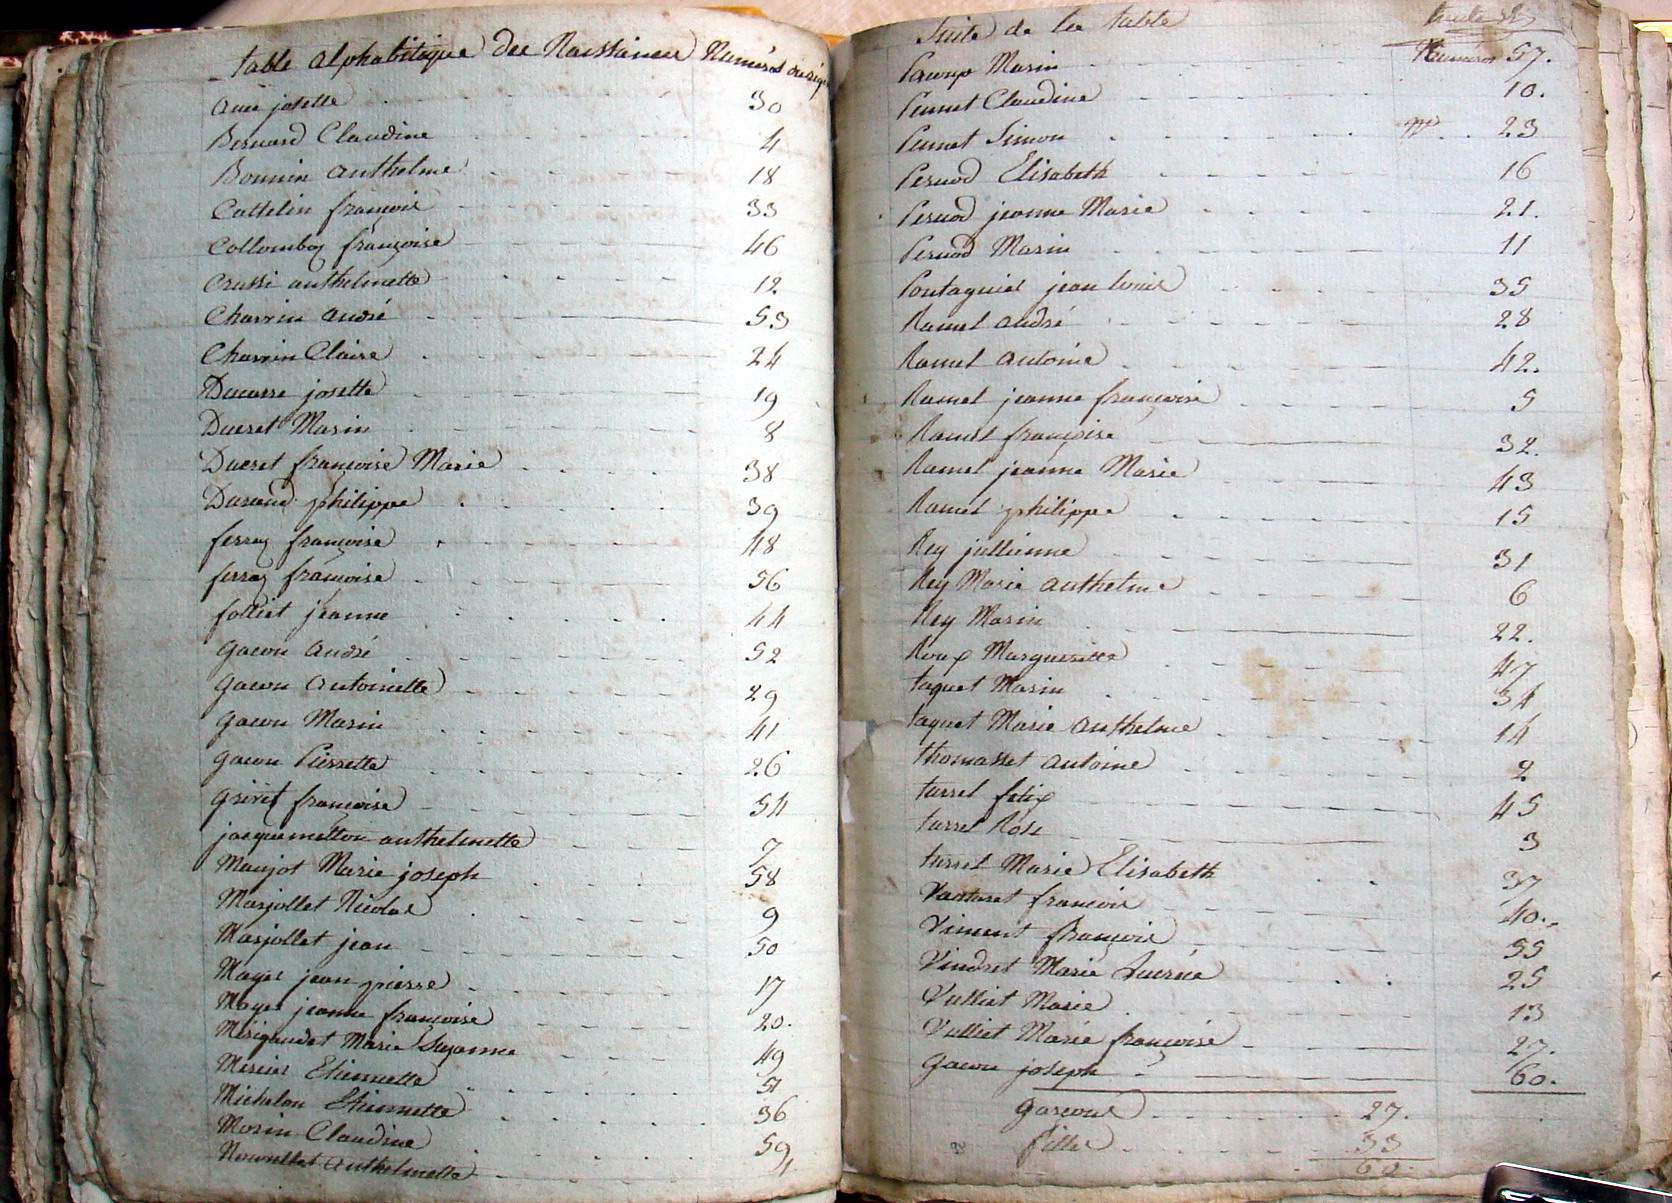 Table alphabétique des Naissances Numéros
ame josette 30
Bernard Claudine 4
Bonnin anthelme 18
Cattelin françois 33
Collomby françoise 46
Crussi anthelmette 12
Charrin andré 53
Charrin Claire 24
Ducarre josette 19
Ducret Marin 8
Ducret françoise Marie 38
Durand philippe 39
ferray françoise 48
ferray françoise 56
folliet jeanne 44
gacon andré 52
gacon antoinette 29
gacon Marin 41
gacon Pierrette 26
grivet françoise 54
jacquemetton anthelmette 7
Maujot Marie joseph 58
Marjollet Nicolas 9
Marjollet jean 50
Mayer jean pierre 17
Mayer jeanne françoise 20.
Mérigaudet Marie Suzanne 49
Mercier Etiennette 51
Michelon Etiennette 36
Morin Claudine 59
anthelmette 1
Suite de la table
Numéros
Marin 57.
Pernet Claudine 10.
Pernet Simon 23
Pernod Elisabeth 16
Pernod jeanne Marie 21.
Pernod Marin 11
Pontagnier jean louis 35
Ramel andré 28
Ramel antoine 42.
Ramel jeanne françoise 5
Ramel françoise 32.
Ramel jeanne Marie 43
Ramel philippe 15
Rey jullienne 31
Rey Marie anthelme 6
Rey Marin 22.
Roux Margueritte 47
taquet Marin 34
taquet Marie anthelme 14
thomasset antoine 2
turrel felix 45
turrel Rose 3
turrel Marie Elisabeth 37
françois 40.
Vincent françois 55
Vindret Marie Lucrèce 25
Vulliet Marie 13
Vulliet Marie françoise 27.
gacon joseph 60.
garçons 27.
filles 33
60.